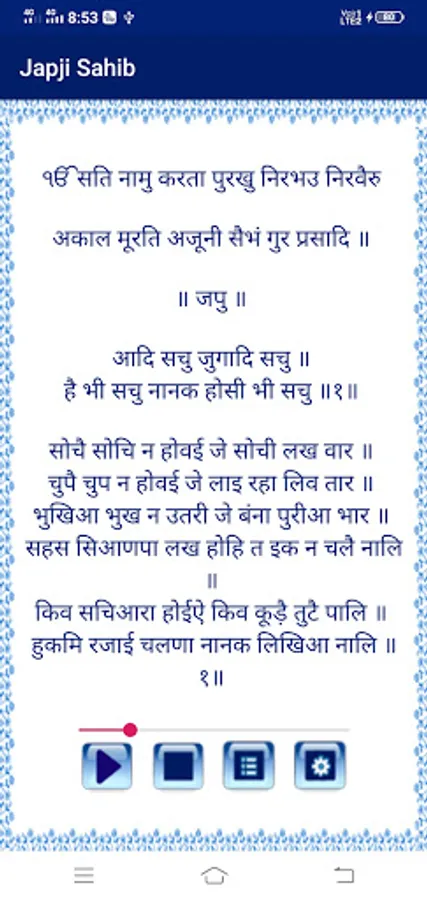 4G 4G 8:53 Vo) 1 LTE2 80
Japji Sahib
ੴ सति नामु करता पुरखु निरभउ निरवैरु
अकाल मूरति अजूनी सैभं गुर प्रसादि ॥
॥ जपु ॥
आदि सचु जुगादि सचु ॥
है भी सचु नानक होसी भी सचु ॥१॥
सोचै सोचि न होवई जे सोची लख वार ॥
चुपै चुप न होवई जे लाइ रहा लिव तार ॥
भुखिआ भुख न उतरी जे बंना पुरीआ भार ॥
सहस सिआणपा लख होहि त इक न चलै नालि
॥
किव सचिआरा होईऐ किव कूड़ै तुटै पालि ॥
हुकमि रजाई चलणा नानक लिखिआ नालि ॥
१॥